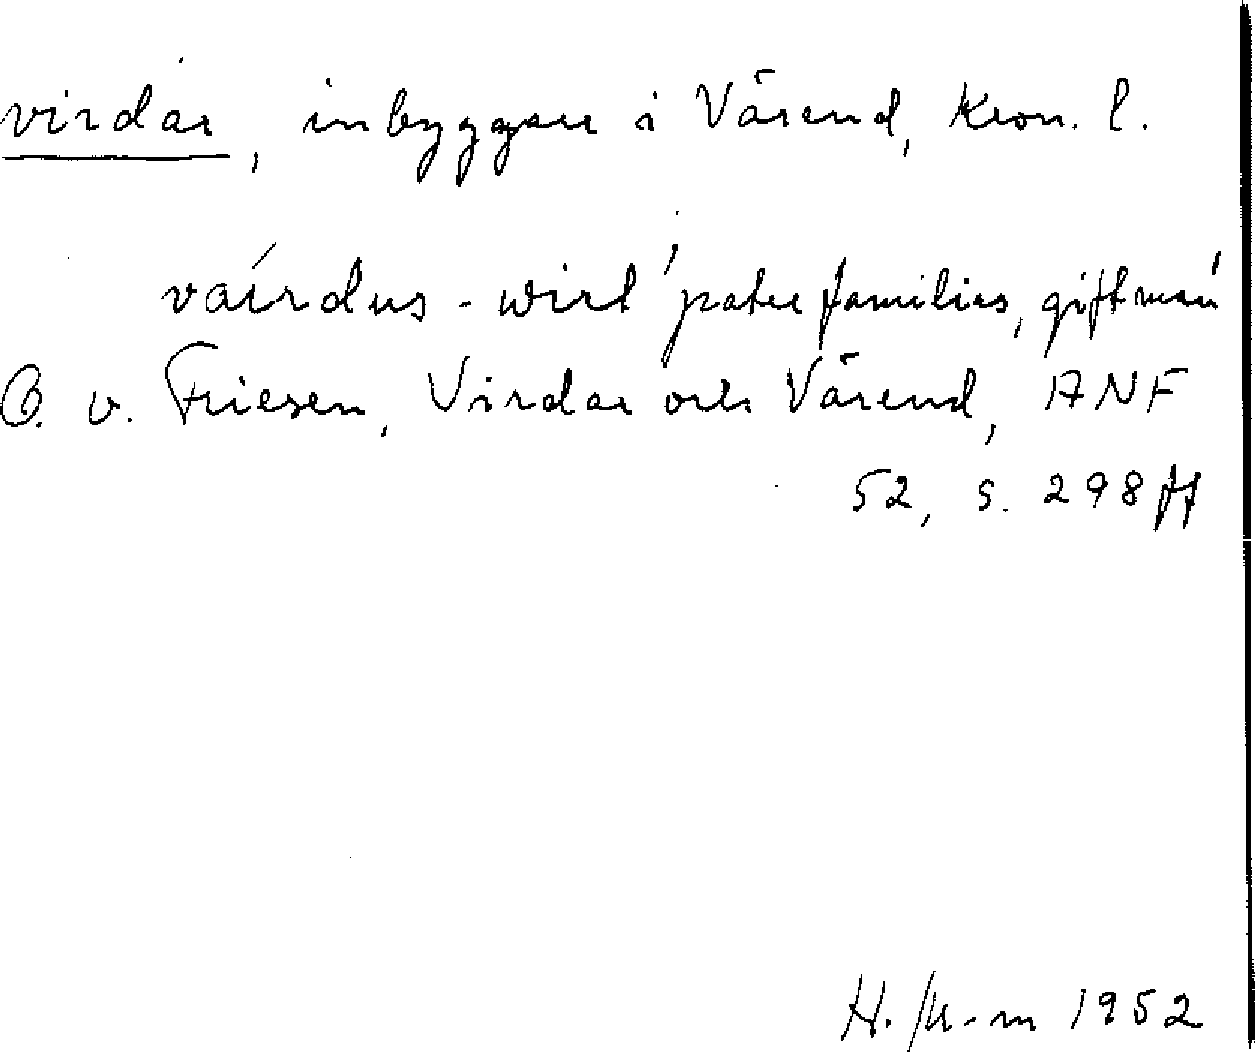 virdar, inbyggare i Värend, Kron. l.
vaírdus - wirt 'pater familias, giftman'
O. v. Friesen, Virdar och Värend, ANF
52, s. 298 ff
1952